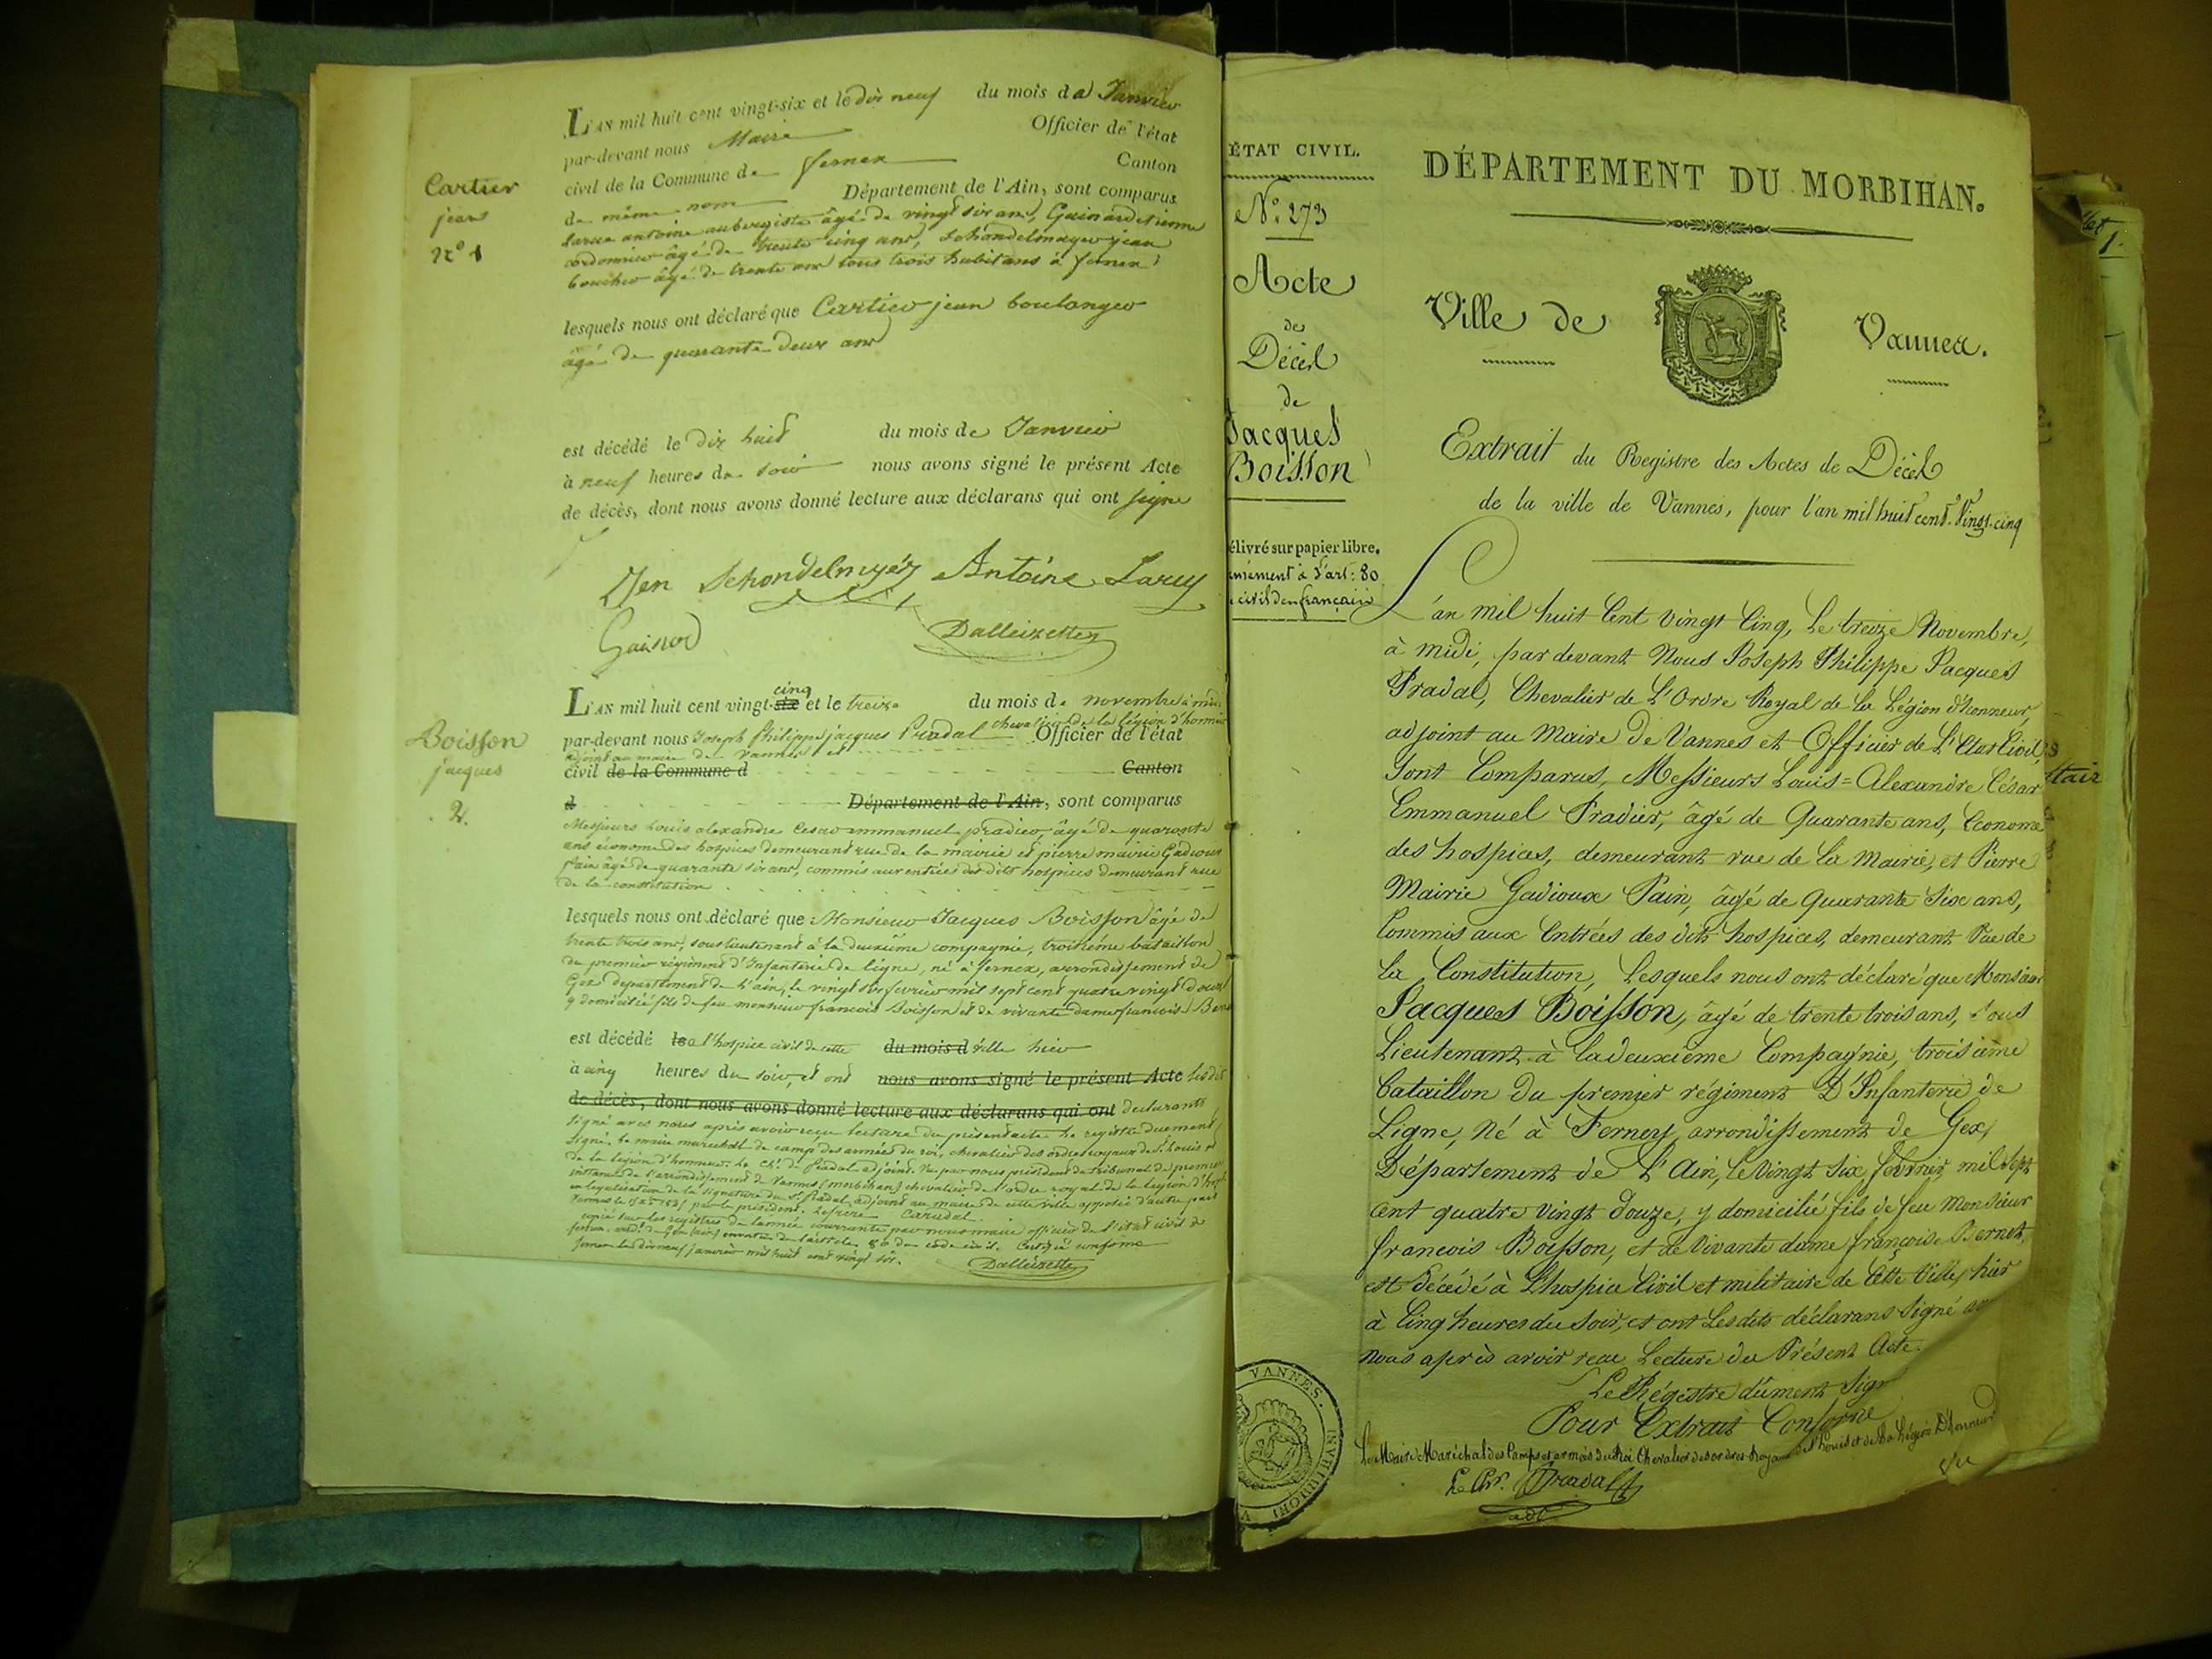 L'AN mil huit cent vingt-six et le dix neuf du mois de Janvier
par-devant nous Maire Officier de l'état
civil de la Commune de fernex Canton
de même nom Département de l'Ain, sont comparus
Larue antoine aubergiste âgé de vingt six ans, Guinard etienne
cordonnier âgé de trente cinq ans, Schondelmayer jean
boucher âgé de trente ans tous trois habitans à fernex
Cartier
jean
n.º 1
lesquels nous ont déclaré que Cartier jean boulanger
âgé de quarante deux ans
est décédé le dix huit du mois de Janvier
à neuf heures du soir nous avons signé le présent Acte
de décès, dont nous avons donné lecture aux déclarans qui ont signé
Schondelmyer Antoine Larue
Dalleizette
L'AN mil huit cent vingt-six cinq et le treize du mois de novembre à midi
par-devant nous Joseph philippe jacques Pradal chevalier de la légion d'honneur Officier de l'état
adjoint au maire de vannes et
civil de la Commune d Canton
d Département de l'Ain, sont comparus
Boisson
jacques
2.
Messieurs Louis alexandre Cesar emmanuel pradier, âgé de quarante
ans économe des hospices demeurant rue de la mairie et pierre mairie Gadioux
pain âgé de quarante six ans, commis aux entrées des dits hospices demeurant rue
de la constitution
lesquels nous ont déclaré que Monsieur Jacques Boisson âgé de
trente trois ans, sous lieutenant à la deuxième compagnie, troisième bataillon
du premier régiment d'Infanterie de ligne, né à fernex, arrondissement de
Gex departement de l'ain, le vingt six fevrier mil sept cent quatre vingt douze
y domicilié fils de feu monsieur françois Boisson et de vivante dame francoise
est décédé le à l'hospice civil de cette du mois d ville hier
à cinq heures du soir, et ont nous avons signé le présent Acte lesdits
de décès, dont nous avons donné lecture aux déclarans qui ont declarants
signé avec nous après avoir reçu lecture du présent acte le registre duement
signé. Le maire maréchal de camp des armées du roi, chevalier des ordres royaux de St. Louis et
de la légion d'honneur. Le ch.r de Pradal adjoint. Vu par nous président du tribunal de premiere
instance de l'arrondissement de Vannes (morbihan) chevalier de l'ordre royal de la légion d'hon.
en legalisation de la signature du Sr. Pradal, adjoint au maire de cette ville apposée d'autre part
copié sur les registres de l'année courrante par nous maire officier de l'état civil de
l'article 80 du code civil. Certifié conforme
fernex le dix neuf janvier mil huit cent vingt six.
Dalleizette
ÉTAT CIVIL.
N.º 273
Acte
de
Décès
de
Jacques
Boisson
élivré sur papier libre.
mément à l'art: 80
civil den français
DÉPARTEMENT DU MORBIHAN.
Ville de Vannes.
Extrait du Registre des Actes de Décès
de la ville de Vannes, pour l'an mil huit cent Vingt-cinq
L'an mil huit Cent vingt Cinq, Le treize Novembre,
à midi, par devant Nous Joseph Philippe Jacques
Pradal, Chevalier de L'Ordre Royal de la Légion d'honneur,
adjoint au Maire de Vannes et Officier de L'Etat Civil,
Sont Comparus, Messieurs Louis=Alexandre César
Emmanuel Pradier, âgé de Quarante ans, Econome
des hospices, demeurant rue de la Mairie, et Pierre
Mairie Gadioux Pain, âgé de Quarante Six ans,
Commis aux Entrées des dits hospices, demeurant Rue de
la Constitution, Lesquels nous ont déclaré que Monsieur
Jacques Boisson, âgé de trente trois ans, Sous
Lieutenant à la deuxième Compagnie, troisième
Bataillon du premier régiment D'Infanterie de
Ligne, Né à Ferney, arrondissement de Gex,
Département de L'Ain, Le Vingt Six fevrier mil Sept
Cent quatre Vingt douze, y domicilié fils de feu Monsieur
francois Boisson, et de Vivante dame françoise Bernet,
est décédé à L'hospice Civil et militaire de Cette Ville, hier
à Cinq heures du Soir, et ont Lesdits déclarans Signé avec
Nous après avoir reçu Lecture du Présent Acte.
Le Régistre dûment Signé
Pour Extrait Conforme
Le Maire Maréchal des Camps et armées du Roi Chevalier des ordres Royaux de St. Louis et de la Légion D'honneur
Le Chr. Pradal
adjt
VANNES. MORBIHAN
Vu